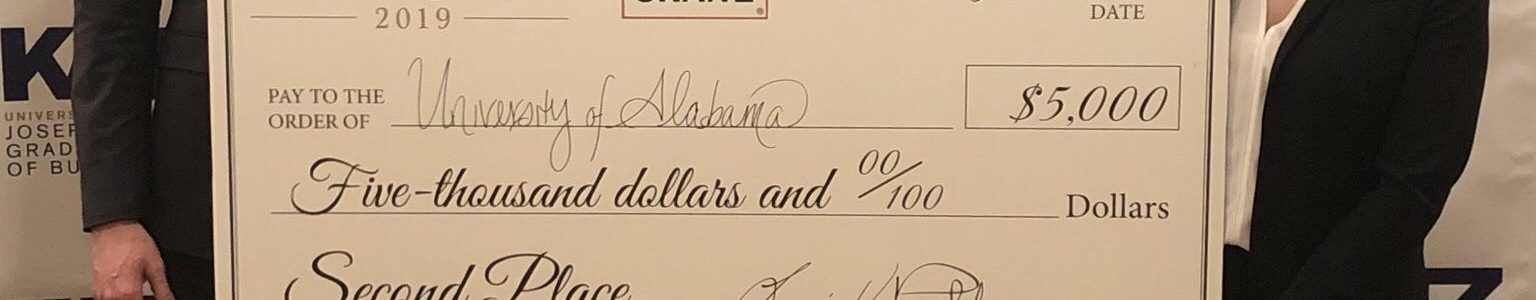 2019
DATE
PAY TO THE
ORDER OF
University of Alabama
$5,000
Five-thousand dollars and 00/100 Dollars
Second Place
K
UNIVERS
JOSEP
GRAD
OF BU
Z